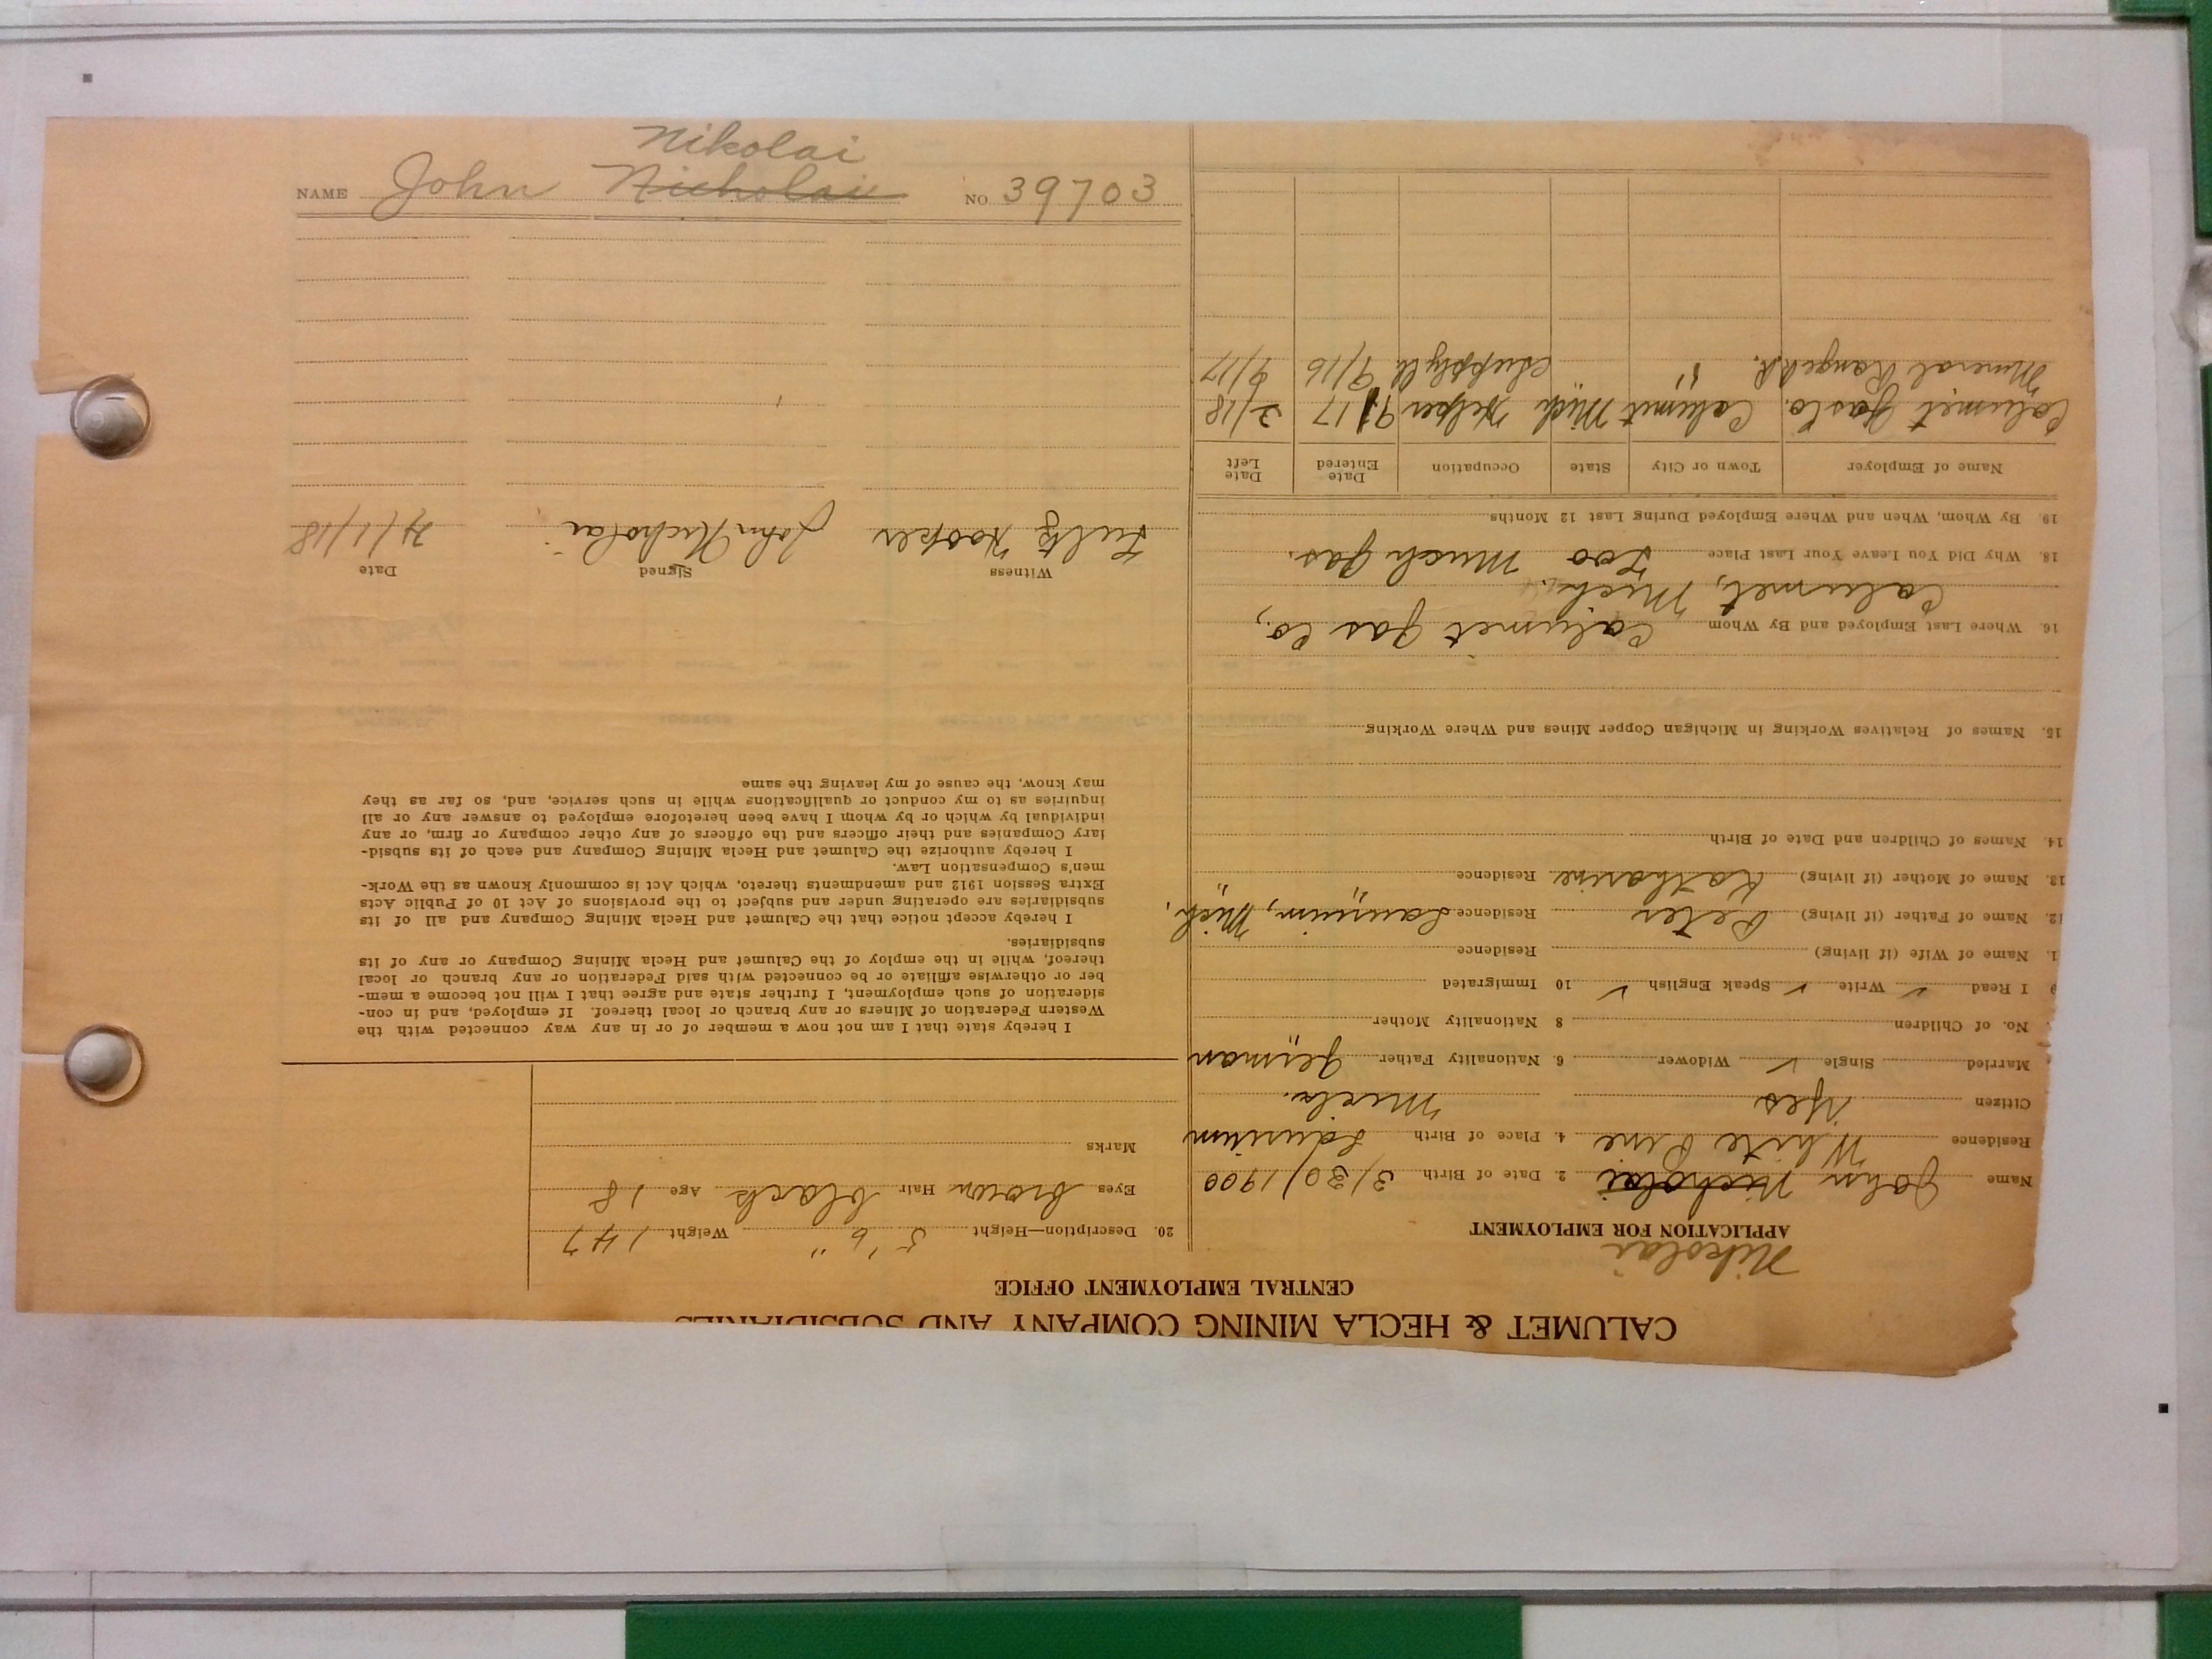 NAME John Nicholai Nikolai NO. 39703
CALUMET & HECLA MINING COMPANY AND SUBSIDIARIES
CENTRAL EMPLOYMENT OFFICE
APPLICATION FOR EMPLOYMENT
Nikolai
Name John Nicholai 2. Date of Birth 3/30/1900
Residence White Pine 4. Place of Birth Laurium
Citizen Yes Mich.
Married Single ✓ Widower 6. Nationality Father German
No. of Children 8 Nationality Mother "
9 I Read ✓ Write ✓ Speak English ✓ 10 Immigrated
1. Name of Wife (if living) Residence
12. Name of Father (if living) Peter Residence Laurium, Mich.
13. Name of Mother (if living) Katharine Residence " "
14. Names of Children and Date of Birth
15. Names of Relatives Working in Michigan Copper Mines and Where Working
16. Where Last Employed and By Whom Calumet Gas Co.,
Calumet, Mich.
18. Why Did You Leave Your Last Place Too Much Gas.
19. By Whom, When and Where Employed During Last 12 Months
Name of Employer Town or City State Occupation Date Entered Date Left
Calumet Gas Co. Calumet Mich Helper 9/17 3/18
Mineral Range R.R. " " 9/16 9/17
20. Description—Height 5' 6" Weight 147
Eyes brown Hair black Age 18
Marks
I hereby state that I am not now a member of or in any way connected with the
Western Federation of Miners or any branch or local thereof. If employed, and in con-
sideration of such employment, I further state and agree that I will not become a mem-
ber or otherwise affiliate or be connected with said Federation or any branch or local
thereof, while in the employ of the Calumet and Hecla Mining Company or any of its
subsidiaries.
I hereby accept notice that the Calumet and Hecla Mining Company and all of its
subsidiaries are operating under and subject to the provisions of Act 10 of Public Acts
Extra Session 1912 and amendments thereto, which Act is commonly known as the Work-
men's Compensation Law.
I hereby authorize the Calumet and Hecla Mining Company and each of its subsid-
iary Companies and their officers and the officers of any other company or firm, or any
individual by which or by whom I have been heretofore employed to answer any or all
inquiries as to my conduct or qualifications while in such service, and, so far as they
may know, the cause of my leaving the same
Witness Signed Date
Hooper John Nicholai 4/1/18